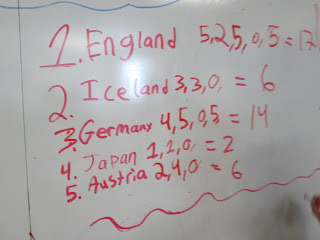 1. England 5,2,5,0,5 = 17
2. Iceland 3,3,0, = 6
3. Germany 4,5,0,5 = 14
4. Japan 1,1,0, = 2
5. Austria 2,4,0, = 6